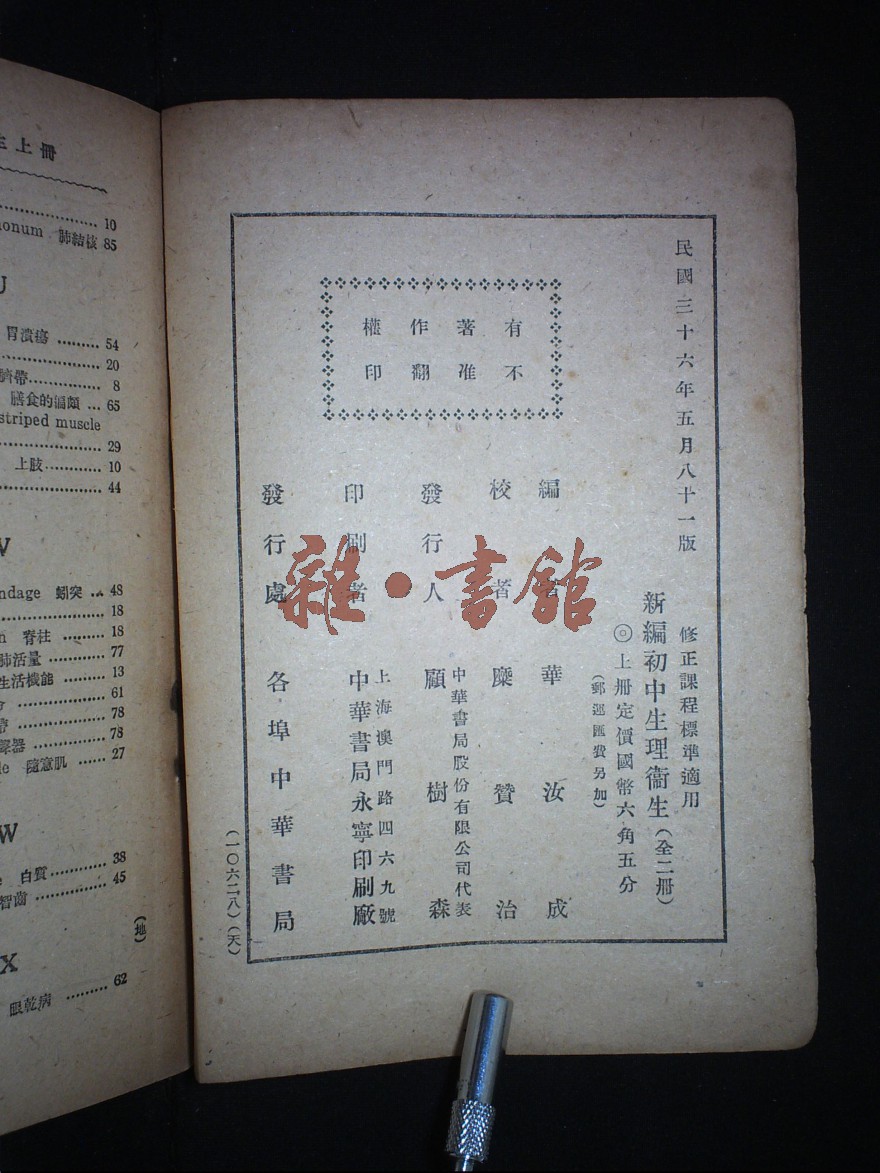 民國三十六年五月八十一版
修正課程標準適用
新編初中生理衞生(全二冊)
◎上册定價國幣六角五分
(郵運匯費另加)
有著作權
不准翻印
編者 華汝成
校者 糜贊治
發行人 中華書局股份有限公司代表
顧樹森
印刷者 上海澳門路四六九號
中華書局永寧印刷廠
發行處 各埠中華書局
(一〇六二八)(天)
雜·書館
生上冊
10
onum 肺結核 85
U
胃潰瘍 54
20
臍帶 8
膳食的偏頗 65
striped muscle
29
上肢 10
44
V
ndage 蚓突 48
18
脊柱 18
肺活量 77
生活機能 13
61
78
78
隨意肌 27
W
白質 38
智齒 45
X
眼乾病 62
(地)